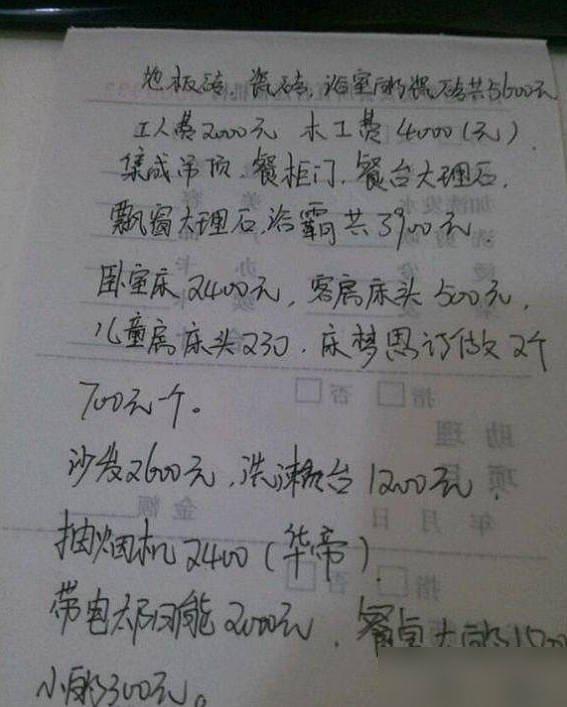 地板砖 瓷砖,浴室间瓷砖共5600元
工人费2000元 木工费4000(元)
集成吊顶,餐柜门,餐台大理石,
飘窗大理石,浴霸共3900元,
卧室床2400元,客房床头500元,
儿童房床头230,床梦思订做2个
700元一个。
沙发2600元,洗漱台1200元,
抽烟机2400(华帝)
带电太阳能2000元,餐桌大的1500
小的300元。